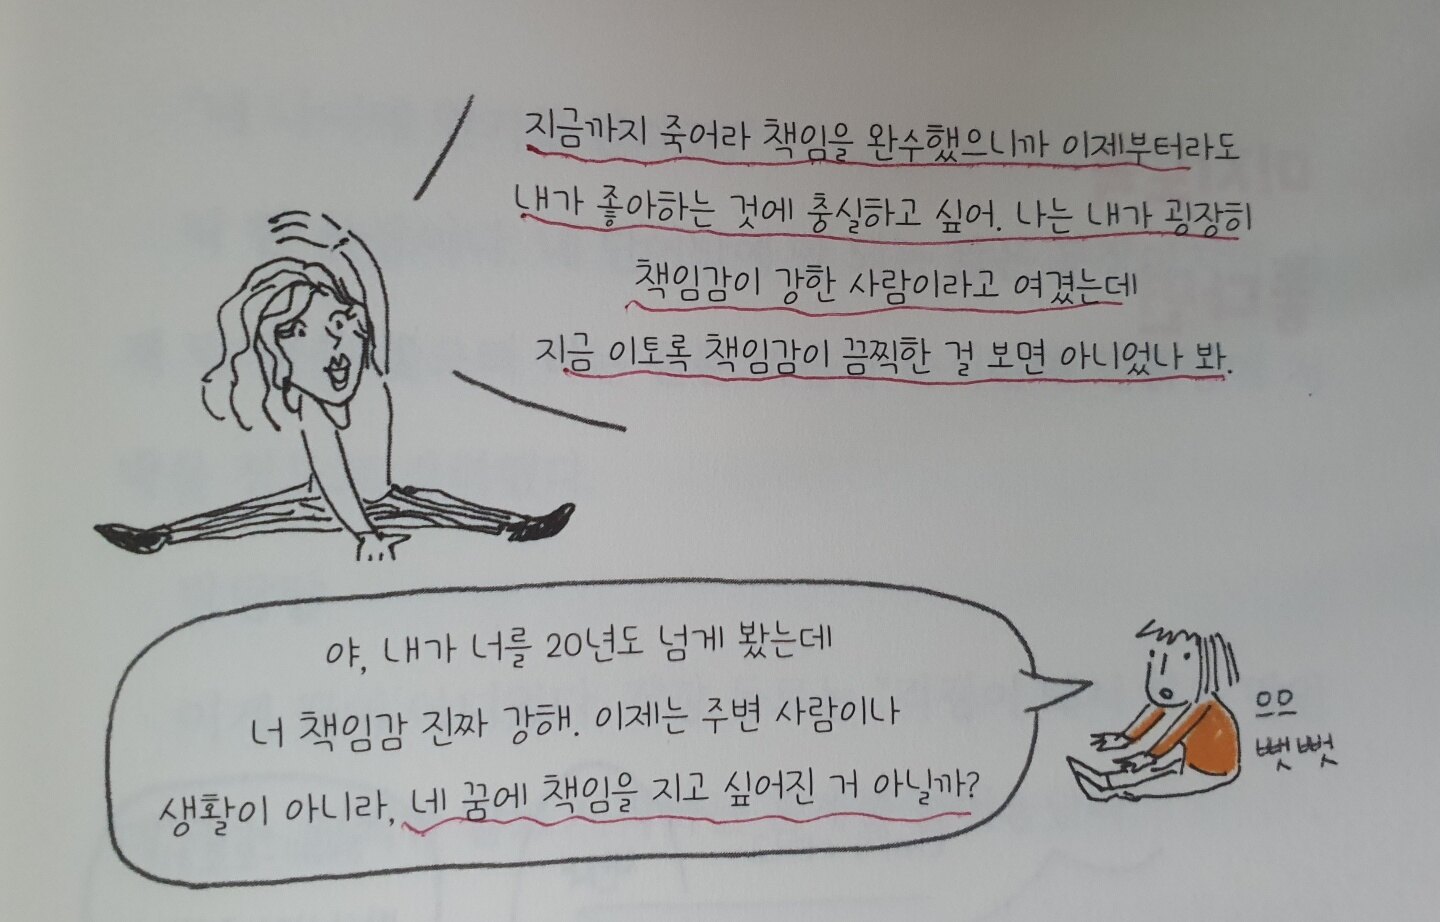 지금까지 죽어라 책임을 완수했으니까 이제부터라도
내가 좋아하는 것에 충실하고 싶어. 나는 내가 굉장히
책임감이 강한 사람이라고 여겼는데
지금 이토록 책임감이 끔찍한 걸 보면 아니었나 봐.
야, 내가 너를 20년도 넘게 봤는데
너 책임감 진짜 강해. 이제는 주변 사람이나
생활이 아니라, 네 꿈에 책임을 지고 싶어진 거 아닐까?
으으
뻣뻣